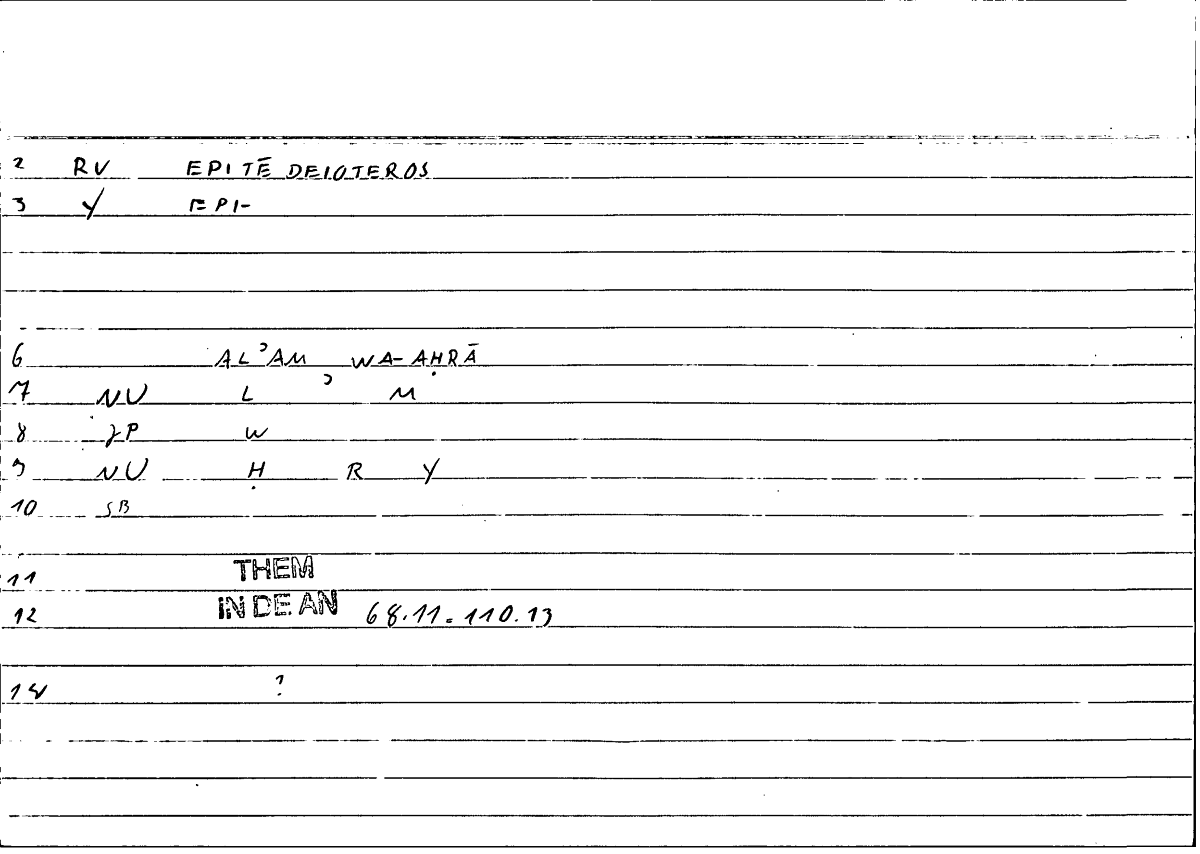 2 RV EPI TĒ DEIOTEROS
3 Y EPI-
6 ALʾAM WA-AḤRĀ
7 NU L ʾ M
8 ZP W
9 NU Ḥ R Y
10 SB
11 THEM
12 IN DE AN 68.11.110.13
14 ?